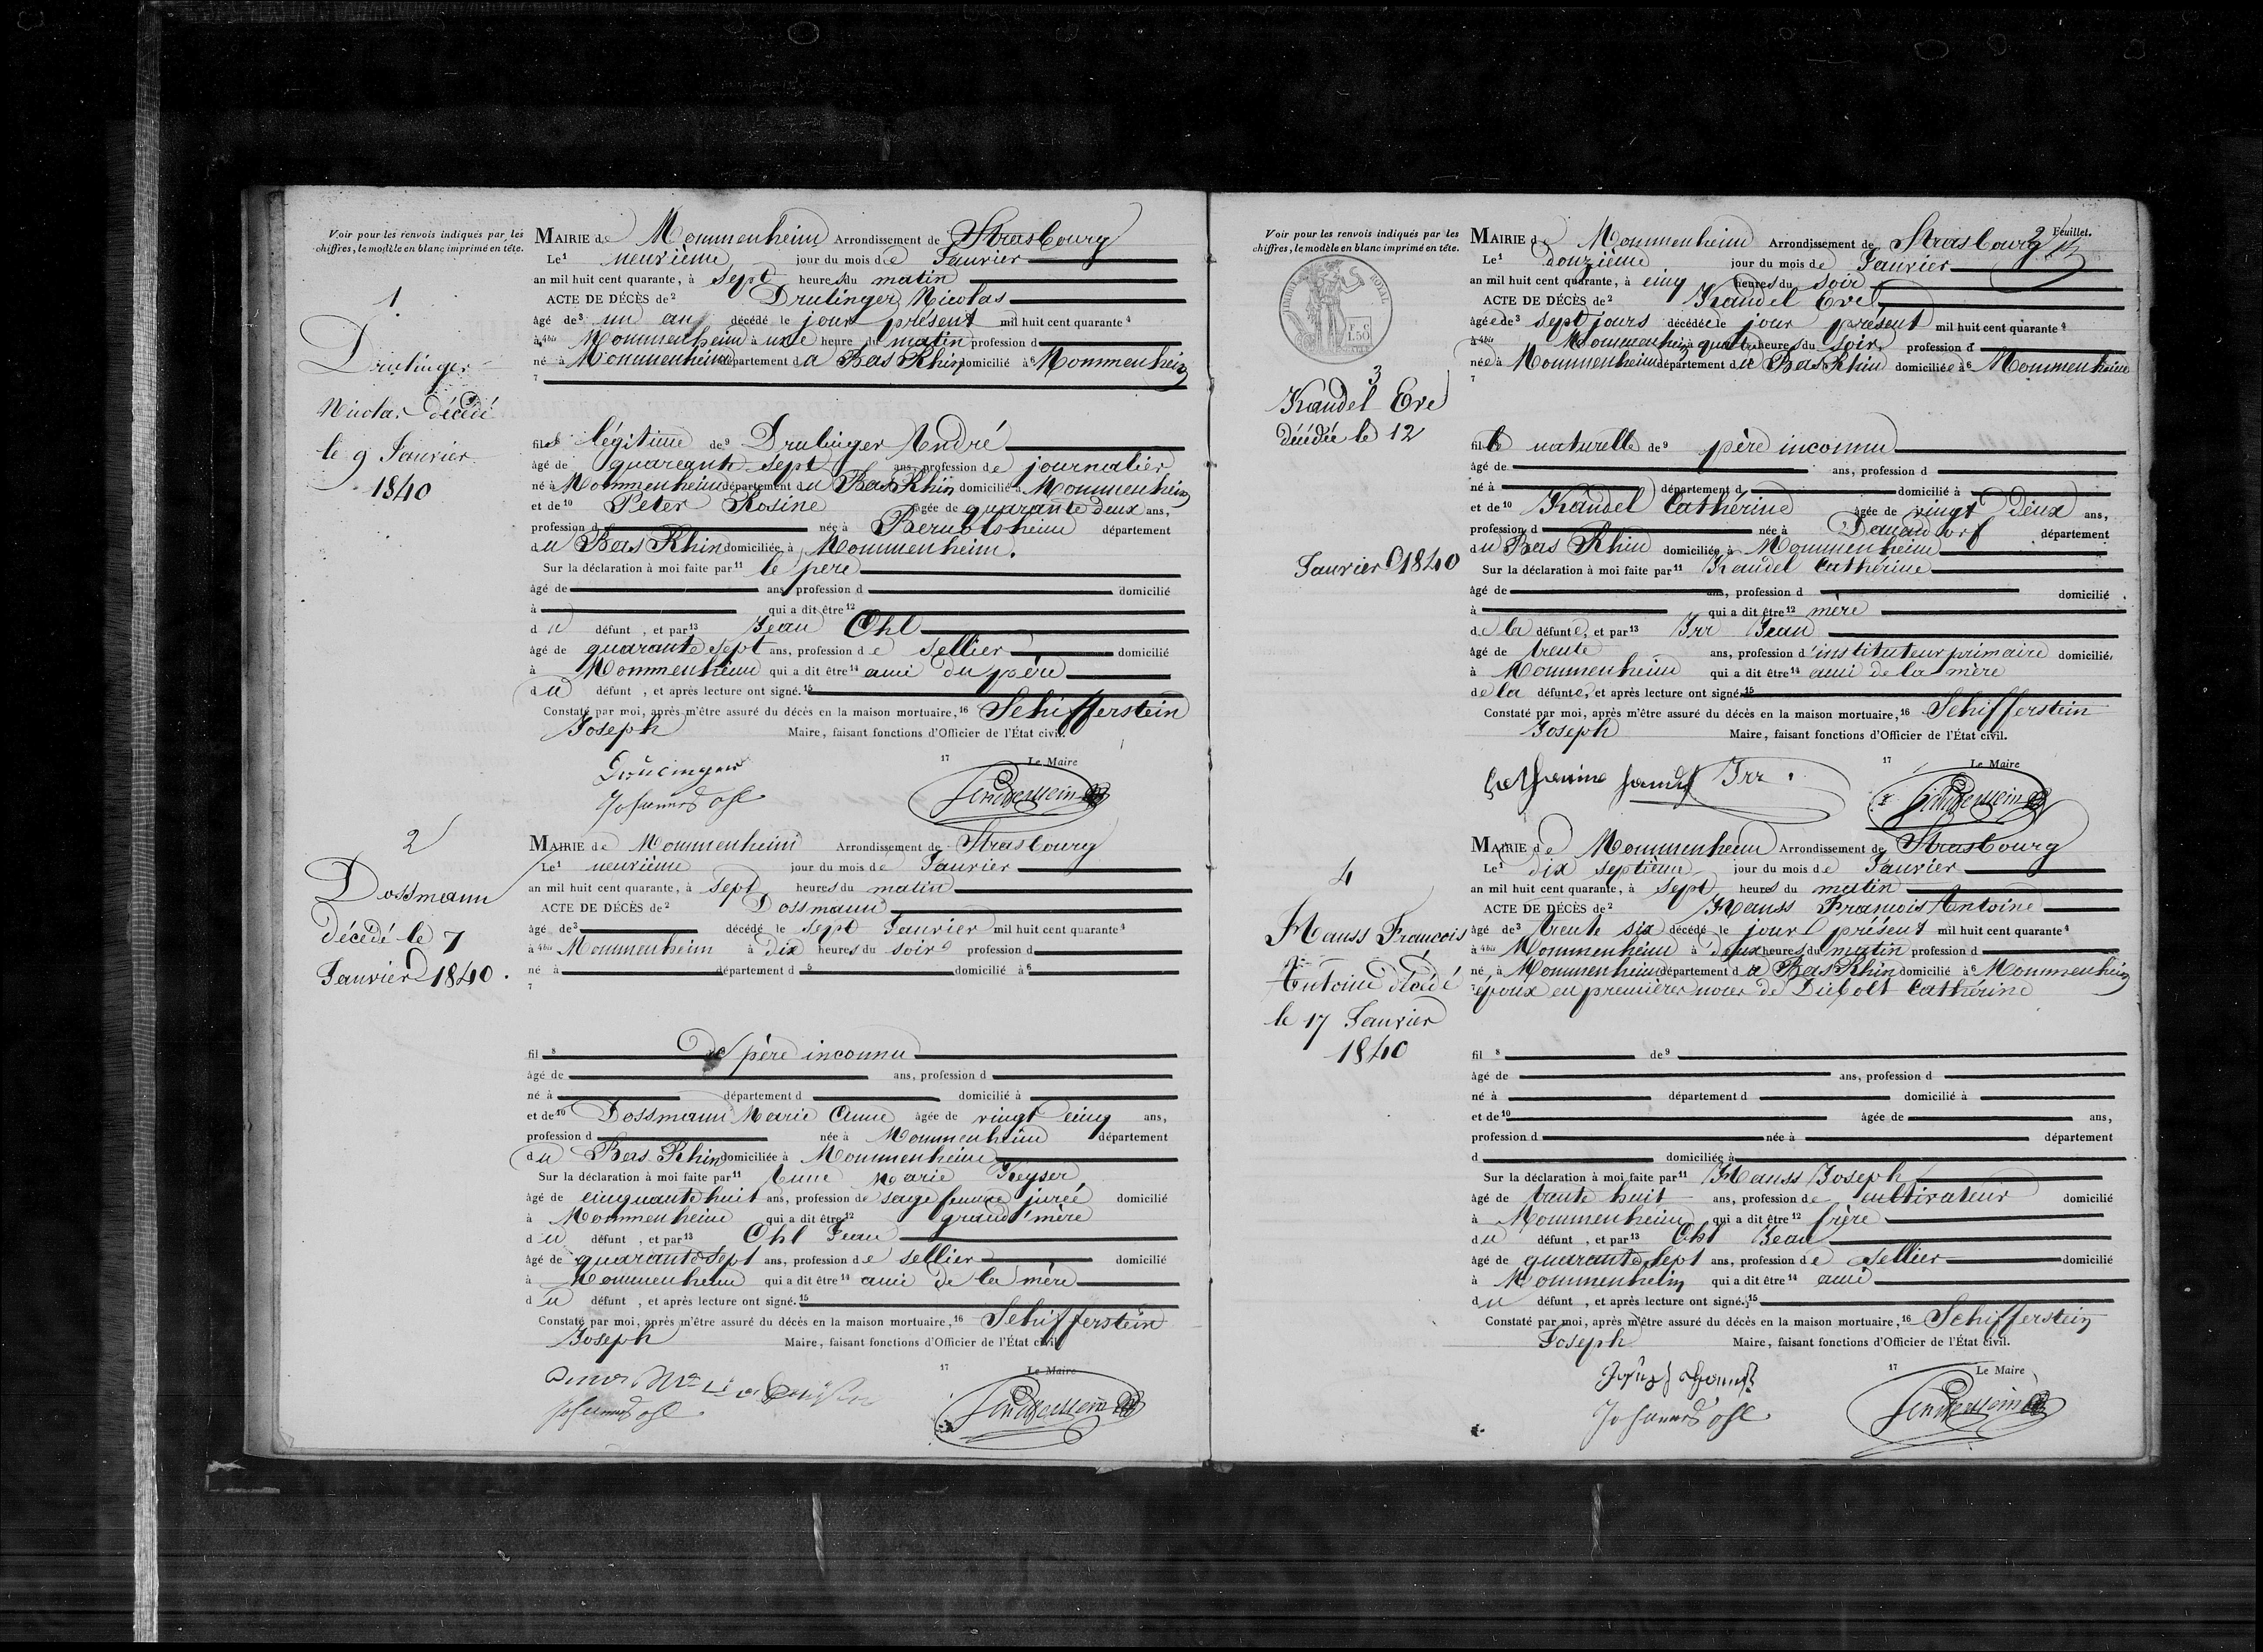 Voir pour les renvois indiqués par les
chiffres, le modèle en blanc imprimé en tête.
1
Drulinger
Nicolas décédé
le 9 Janvier
1840
MAIRIE de Mommenheim Arrondissement de Strasbourg
Le¹ neuvième jour du mois de Janvier
an mil huit cent quarante, à sept heures du matin
ACTE DE DÉCÈS de² Drulinger Nicolas
âgé de³ un an décédé le jour présent mil huit cent quarante⁴
à⁴ᵇⁱˢ Mommenheim à une heure du matin profession d
né à Mommenheim département du Bas Rhin domicilié à⁶ Mommenheim
7
fils légitime de⁹ Drulinger André
âgé de quarante sept ans, profession de journalier
né à Mommenheim département du Bas Rhin domicilié à Mommenheim
et de¹⁰ Peter Rosine âgée de quarante deux ans,
profession d née à Bernolsheim département
du Bas Rhin domiciliée à Mommenheim.
Sur la déclaration à moi faite par¹¹ le père
âgé de ans, profession d domicilié
à qui a dit être¹²
du défunt , et par¹³ Jean Ohl
âgé de quarante sept ans, profession de sellier domicilié
à Mommenheim qui a dit être¹⁴ ami du père
du défunt , et après lecture ont signé.¹⁵
Constaté par moi, après m'être assuré du décès en la maison mortuaire,¹⁶ Schifferstein
Joseph Maire, faisant fonctions d'Officier de l'État civil.
17 Le Maire
Johannes Ohl
2
Dossmann
décédé le 7
Janvier 1840.
MAIRIE de Mommenheim Arrondissement de Strasbourg
Le¹ neuvième jour du mois de Janvier
an mil huit cent quarante, à sept heures du matin
ACTE DE DÉCÈS de² Dossmann
âgé de³ décédé le sept Janvier mil huit cent quarante⁴
à⁴ᵇⁱˢ Mommenheim à dix heures du soir profession d
né à département d⁵ domicilié à⁶
7
fil⁸ de père inconnu
âgé de ans, profession d
né à département d domicilié à
et de¹⁰ Dossmann Marie Anne âgée de vingt cinq ans,
profession d née à Mommenheim département
du Bas Rhin domiciliée à Mommenheim
Sur la déclaration à moi faite par¹¹ Anne Marie Keyser
âgé de cinquante huit ans, profession de sage femme jurée domicilié
à Mommenheim qui a dit être¹² grand'mère
du défunt , et par¹³ Ohl Jean
âgé de quarante sept ans, profession de sellier domicilié
à Mommenheim qui a dit être¹⁴ ami de la mère
du défunt , et après lecture ont signé.¹⁵
Constaté par moi, après m'être assuré du décès en la maison mortuaire,¹⁶ Schifferstein
Joseph Maire, faisant fonctions d'Officier de l'État civil.
17 Le Maire
Johannes Ohl
2 Feuillet.
Voir pour les renvois indiqués par les
chiffres, le modèle en blanc imprimé en tête.
TIMBRE ROYAL
F. C
1.50
3
Kandel Eve
décédée le 12
Janvier 1840
MAIRIE de Mommenheim Arrondissement de Strasbourg
Le¹ douzième jour du mois de Janvier
an mil huit cent quarante, à cinq heures du soir
ACTE DE DÉCÈS de² Kandel Eve
âgée de³ sept jours décédée le jour présent mil huit cent quarante⁴
à⁴ᵇⁱˢ Mommenheim à quatre heures du soir, profession d
née à Mommenheim département du Bas Rhin domiciliée à⁶ Mommenheim
7
fille naturelle de⁹ père inconnu
âgé de ans, profession d
né à département d domicilié à
et de¹⁰ Kandel Cathérine âgée de vingt deux ans,
profession d née à Dauendorf département
du Bas Rhin domiciliée à Mommenheim
Sur la déclaration à moi faite par¹¹ Kandel Cathérine
âgé de ans, profession d domicilié
à qui a dit être¹² mère
de la défunte, et par¹³ Irr Jean
âgé de trente ans, profession d'instituteur primaire domicilié
à Mommenheim qui a dit être¹⁴ ami de la mère
de la défunte, et après lecture ont signé.¹⁵
Constaté par moi, après m'être assuré du décès en la maison mortuaire,¹⁶ Schifferstein
Joseph Maire, faisant fonctions d'Officier de l'État civil.
17 Le Maire
Irr
4
Hanss François
Antoine décédé
le 17 Janvier
1840
MAIRIE de Mommenheim Arrondissement de Strasbourg
Le¹ dix septième jour du mois de Janvier
an mil huit cent quarante, à sept heures du matin
ACTE DE DÉCÈS de² Hanss François Antoine
âgé de³ trente six décédé le jour présent mil huit cent quarante⁴
à⁴ᵇⁱˢ Mommenheim à deux heures du matin profession d
né à Mommenheim département du Bas Rhin domicilié à⁶ Mommenheim
7 époux en premières noces de Diebolt Cathérine
fil⁸ de⁹
âgé de ans, profession d
né à département d domicilié à
et de¹⁰ âgée de ans,
profession d née à département
d domiciliée à
Sur la déclaration à moi faite par¹¹ Hanss Joseph
âgé de trente huit ans, profession de cultivateur domicilié
à Mommenheim qui a dit être¹² frère
du défunt , et par¹³ Ohl Jean
âgé de quarante sept ans, profession de sellier domicilié
à Mommenheim qui a dit être¹⁴ ami
du défunt , et après lecture ont signé.¹⁵
Constaté par moi, après m'être assuré du décès en la maison mortuaire,¹⁶ Schifferstein
Joseph Maire, faisant fonctions d'Officier de l'État civil.
17 Le Maire
Johannes Ohl